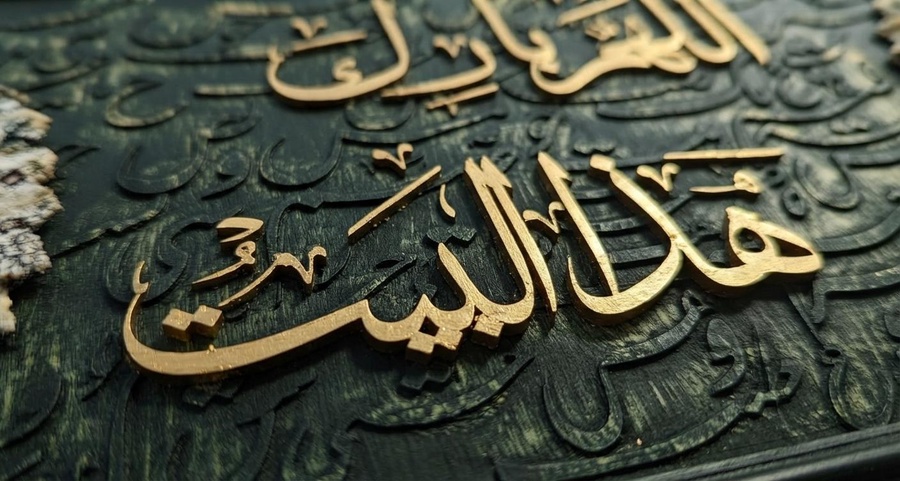 اللهم بارك
هذا البيت